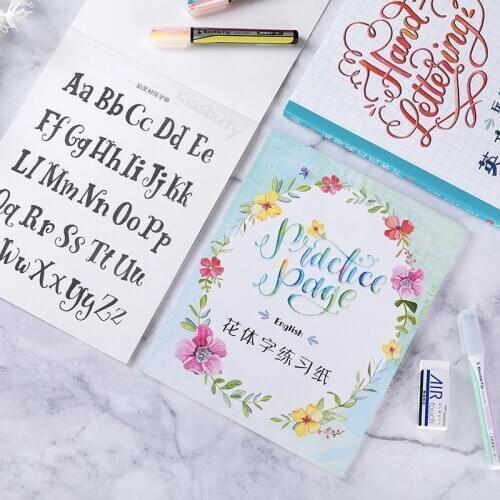 kissbuty
Aa Bb Cc Dd Ee
Ff Gg Hh Ii Jj Kk
Ll Mm Nn Oo Pp
Qq Rr Ss Tt Uu
Vv Ww Xx Yy Zz
Hand
Lettering
英
Practice
Page
English
花体字练习纸
AIR
touch